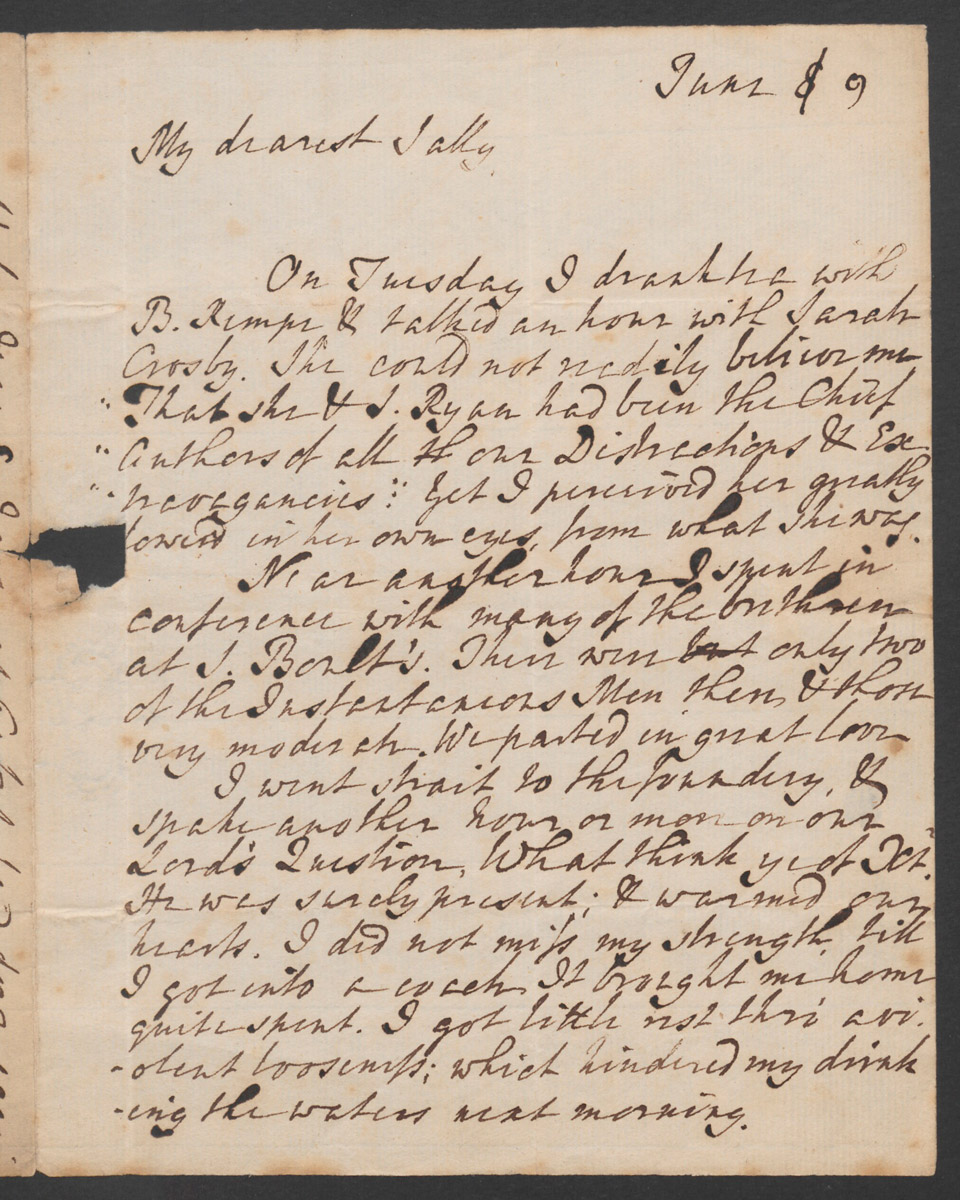 June 8 9
My dearest Sally
On Tuesday I drank tea with
B. Kempe & talked an hour with Sarah
Crosby. She could not readily believe me
"That she & S. Ryan had been the Chief
"Authors of all th our Distractions & Ex-
"travagancies": Yet I perceived her greatly
lowerd in her own eyes, from what she was.
Near another hour I spent in
conference with many of the brethren
at J. Boult's. There were but only two
of the Instantaneous Men there, & those
very moderate. We parted in great love
I went strait to the Foundery, &
spake another hour or more on our
Lord's Question, What think ye of Xt.
He was surely present; & warmed our
hearts. I did not miss my strength, till
I got into a coach. It brought me home
quite spent. I got little rest thro' a vi-
-olent looseness; which hindered my drink
-ing the waters next morning.